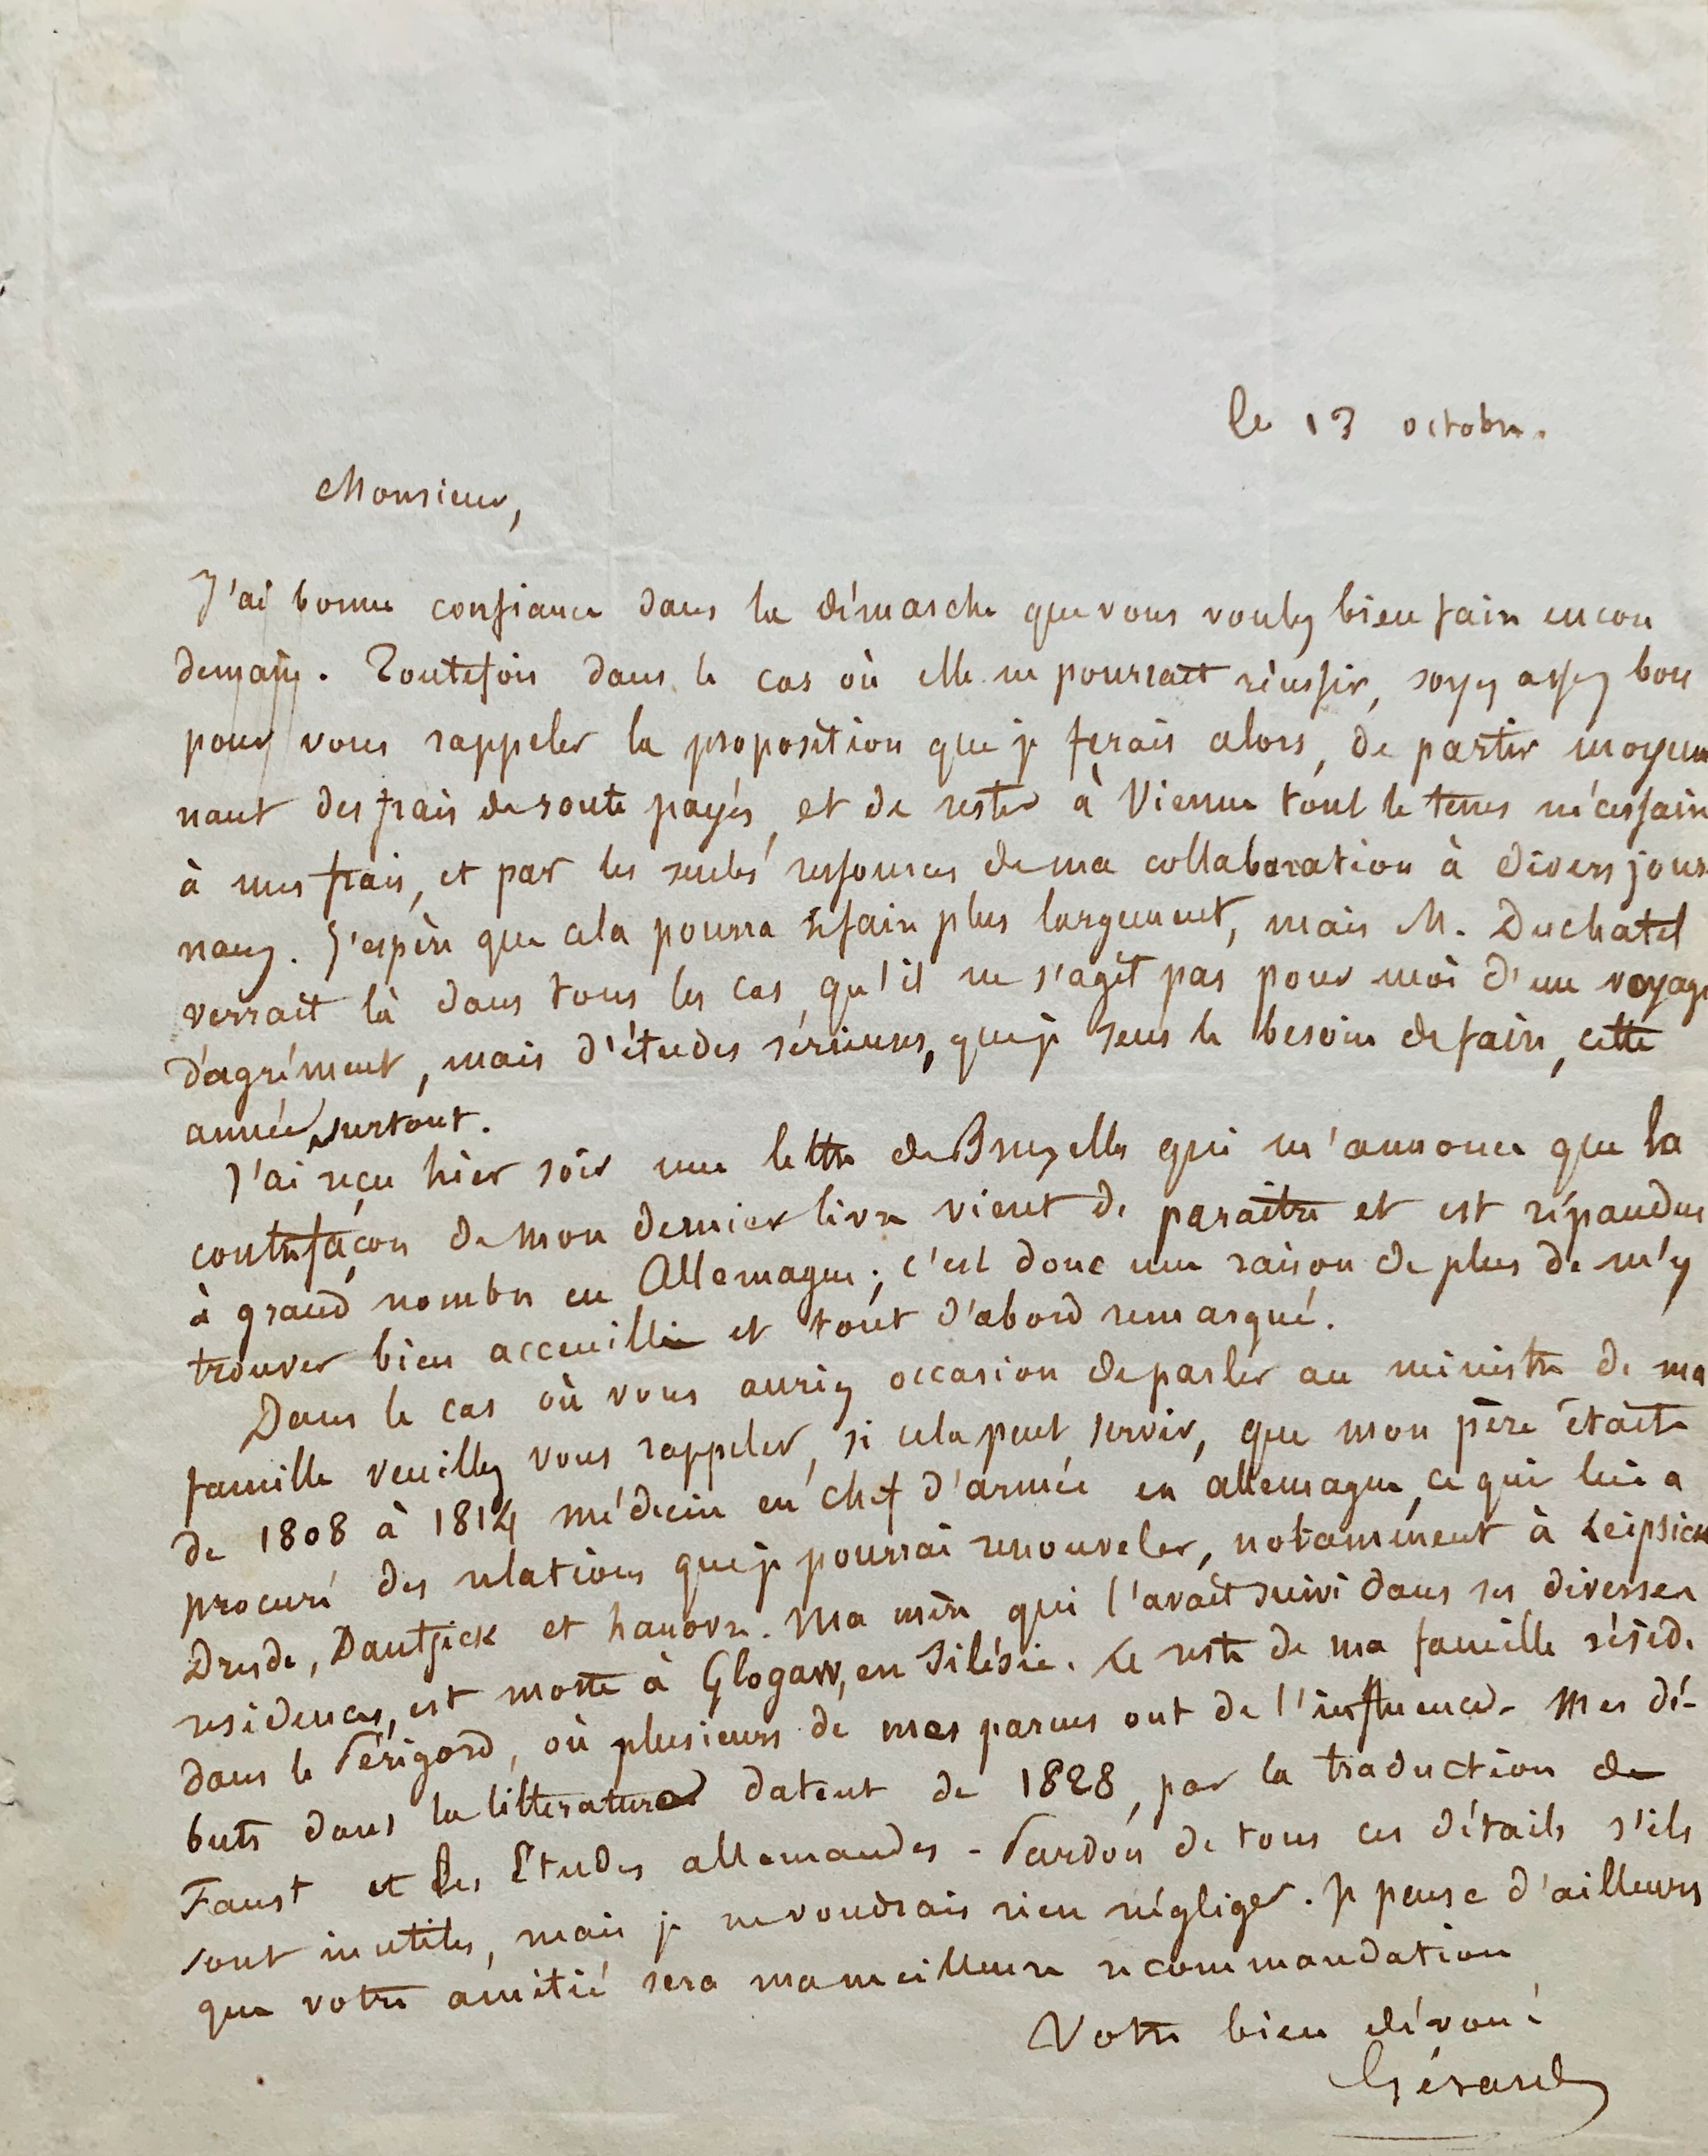 le 13 octobre.
Monsieur,
J'ai bonne confiance dans la démarche que vous voulez bien faire encore
demain. Toutefois dans le cas où elle ne pourrait réussir, soyez assez bon
pour vous rappeler la proposition que je ferais alors, de partir moyen
nant des frais de route payés, et de rester à Vienne tout le tems nécessaire
à mes frais, et par les seules ressources de ma collaboration à divers jour
naux. J'espère que cela pourra se faire plus largement, mais M. Duchatel
verrait là dans tous les cas, qu'il ne s'agit pas pour moi d'un voyage
d'agrément, mais d'études sérieuses, que je sens le besoin de faire, cette
année surtout.
J'ai reçu hier soir une lettre de Bruxelles qui m'annonce que la
contrefaçon de mon dernier livre vient de paraître et est répandue
à grand nombre en Allemagne ; c'est donc une raison de plus de m'y
trouver bien accueilli et tout d'abord remarqué.
Dans le cas où vous auriez occasion de parler au ministre de ma
famille veuillez vous rappeler, si cela peut servir, que mon père était
de 1808 à 1814 médecin en chef d'armée en allemagne, ce qui lui a
procuré des relations que je pourrai renouveler, notamment à Leipsick
Dresde, Dantzick et hanovre. Ma mère qui l'avait suivi dans ses diverses
residences, est morte à Glogaw, en Silésie. Le reste de ma famille réside
dans le Périgord, où plusieurs de mes parens ont de l'influence. Mes dé-
buts dans la litterature datent de 1828, par la traduction de
Faust et les Etudes allemandes - Pardon de tous ces détails s'ils
sont inutiles, mais je ne voudrais rien négliger. Je pense d'ailleurs
que votre amitié sera ma meilleure recommandation
Votre bien dévoué
Gérard